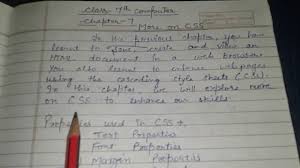 Class-7th Computer
Chapter-7
More on CSS
In the previous chapter, you have
learnt to save, create and view an
HTML document in a web browser.
You also learnt to enhance web pages
using the cascading style sheets (CSS).
In this chapter, we will explore more
on CSS to enhance our skills.
Properties used in CSS →
Text Properties
Font Properties
Margin Properties